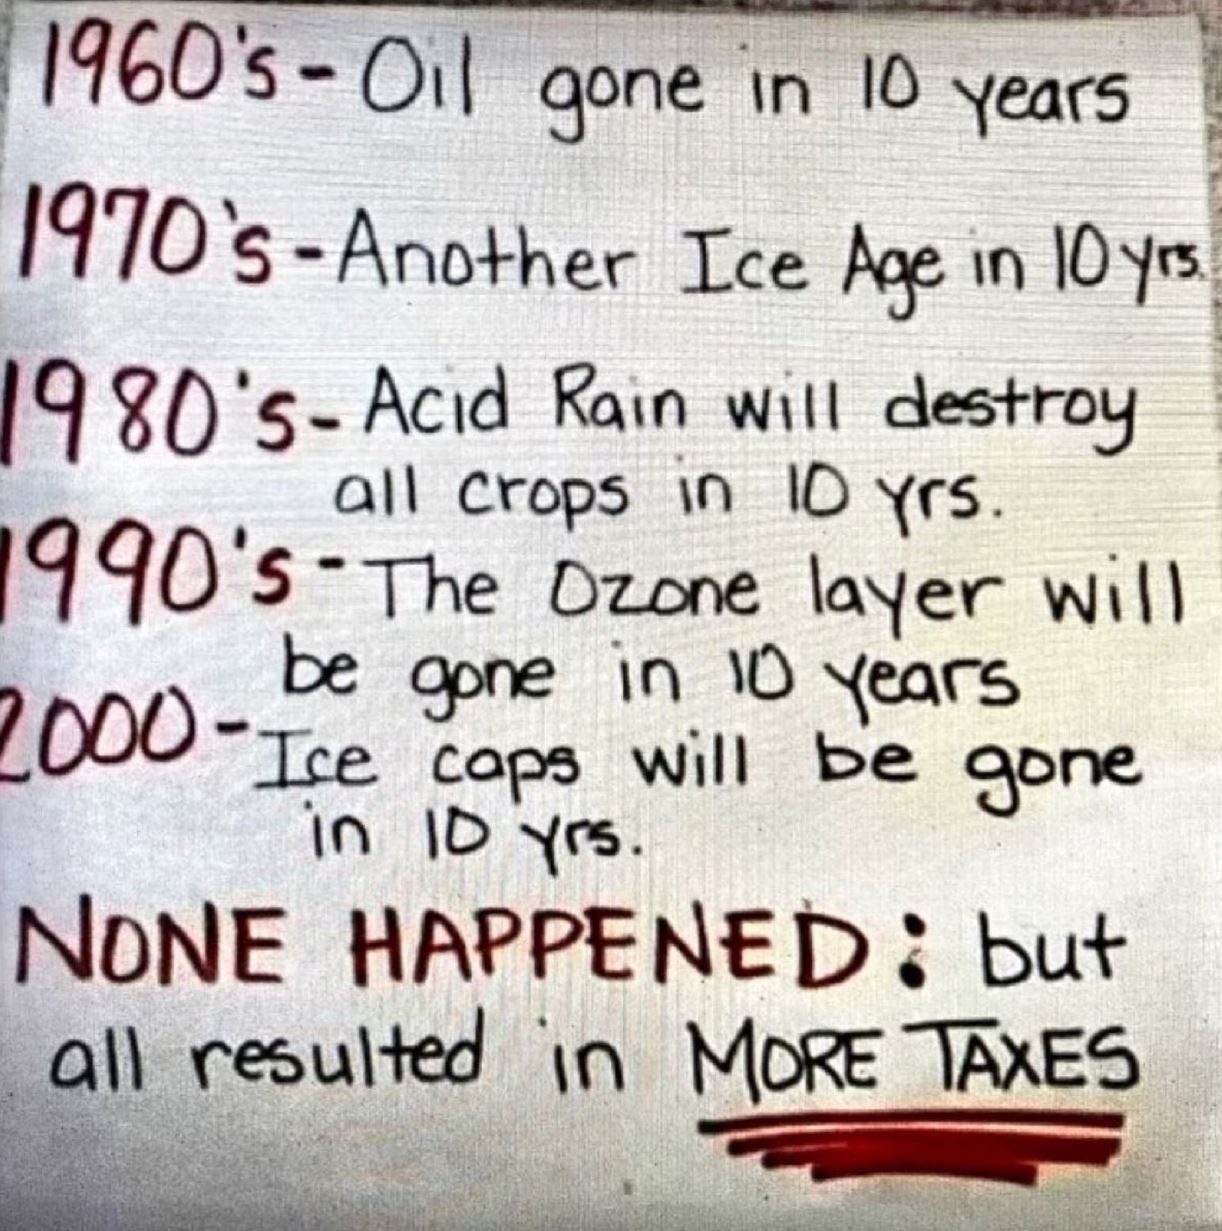 1960's - Oil gone in 10 years
1970's - Another Ice Age in 10 yrs.
1980's - Acid Rain will destroy
all crops in 10 yrs.
1990's - The Ozone layer will
be gone in 10 years
2000 - Ice caps will be gone
in 10 yrs.
NONE HAPPENED: but
all resulted in MORE TAXES